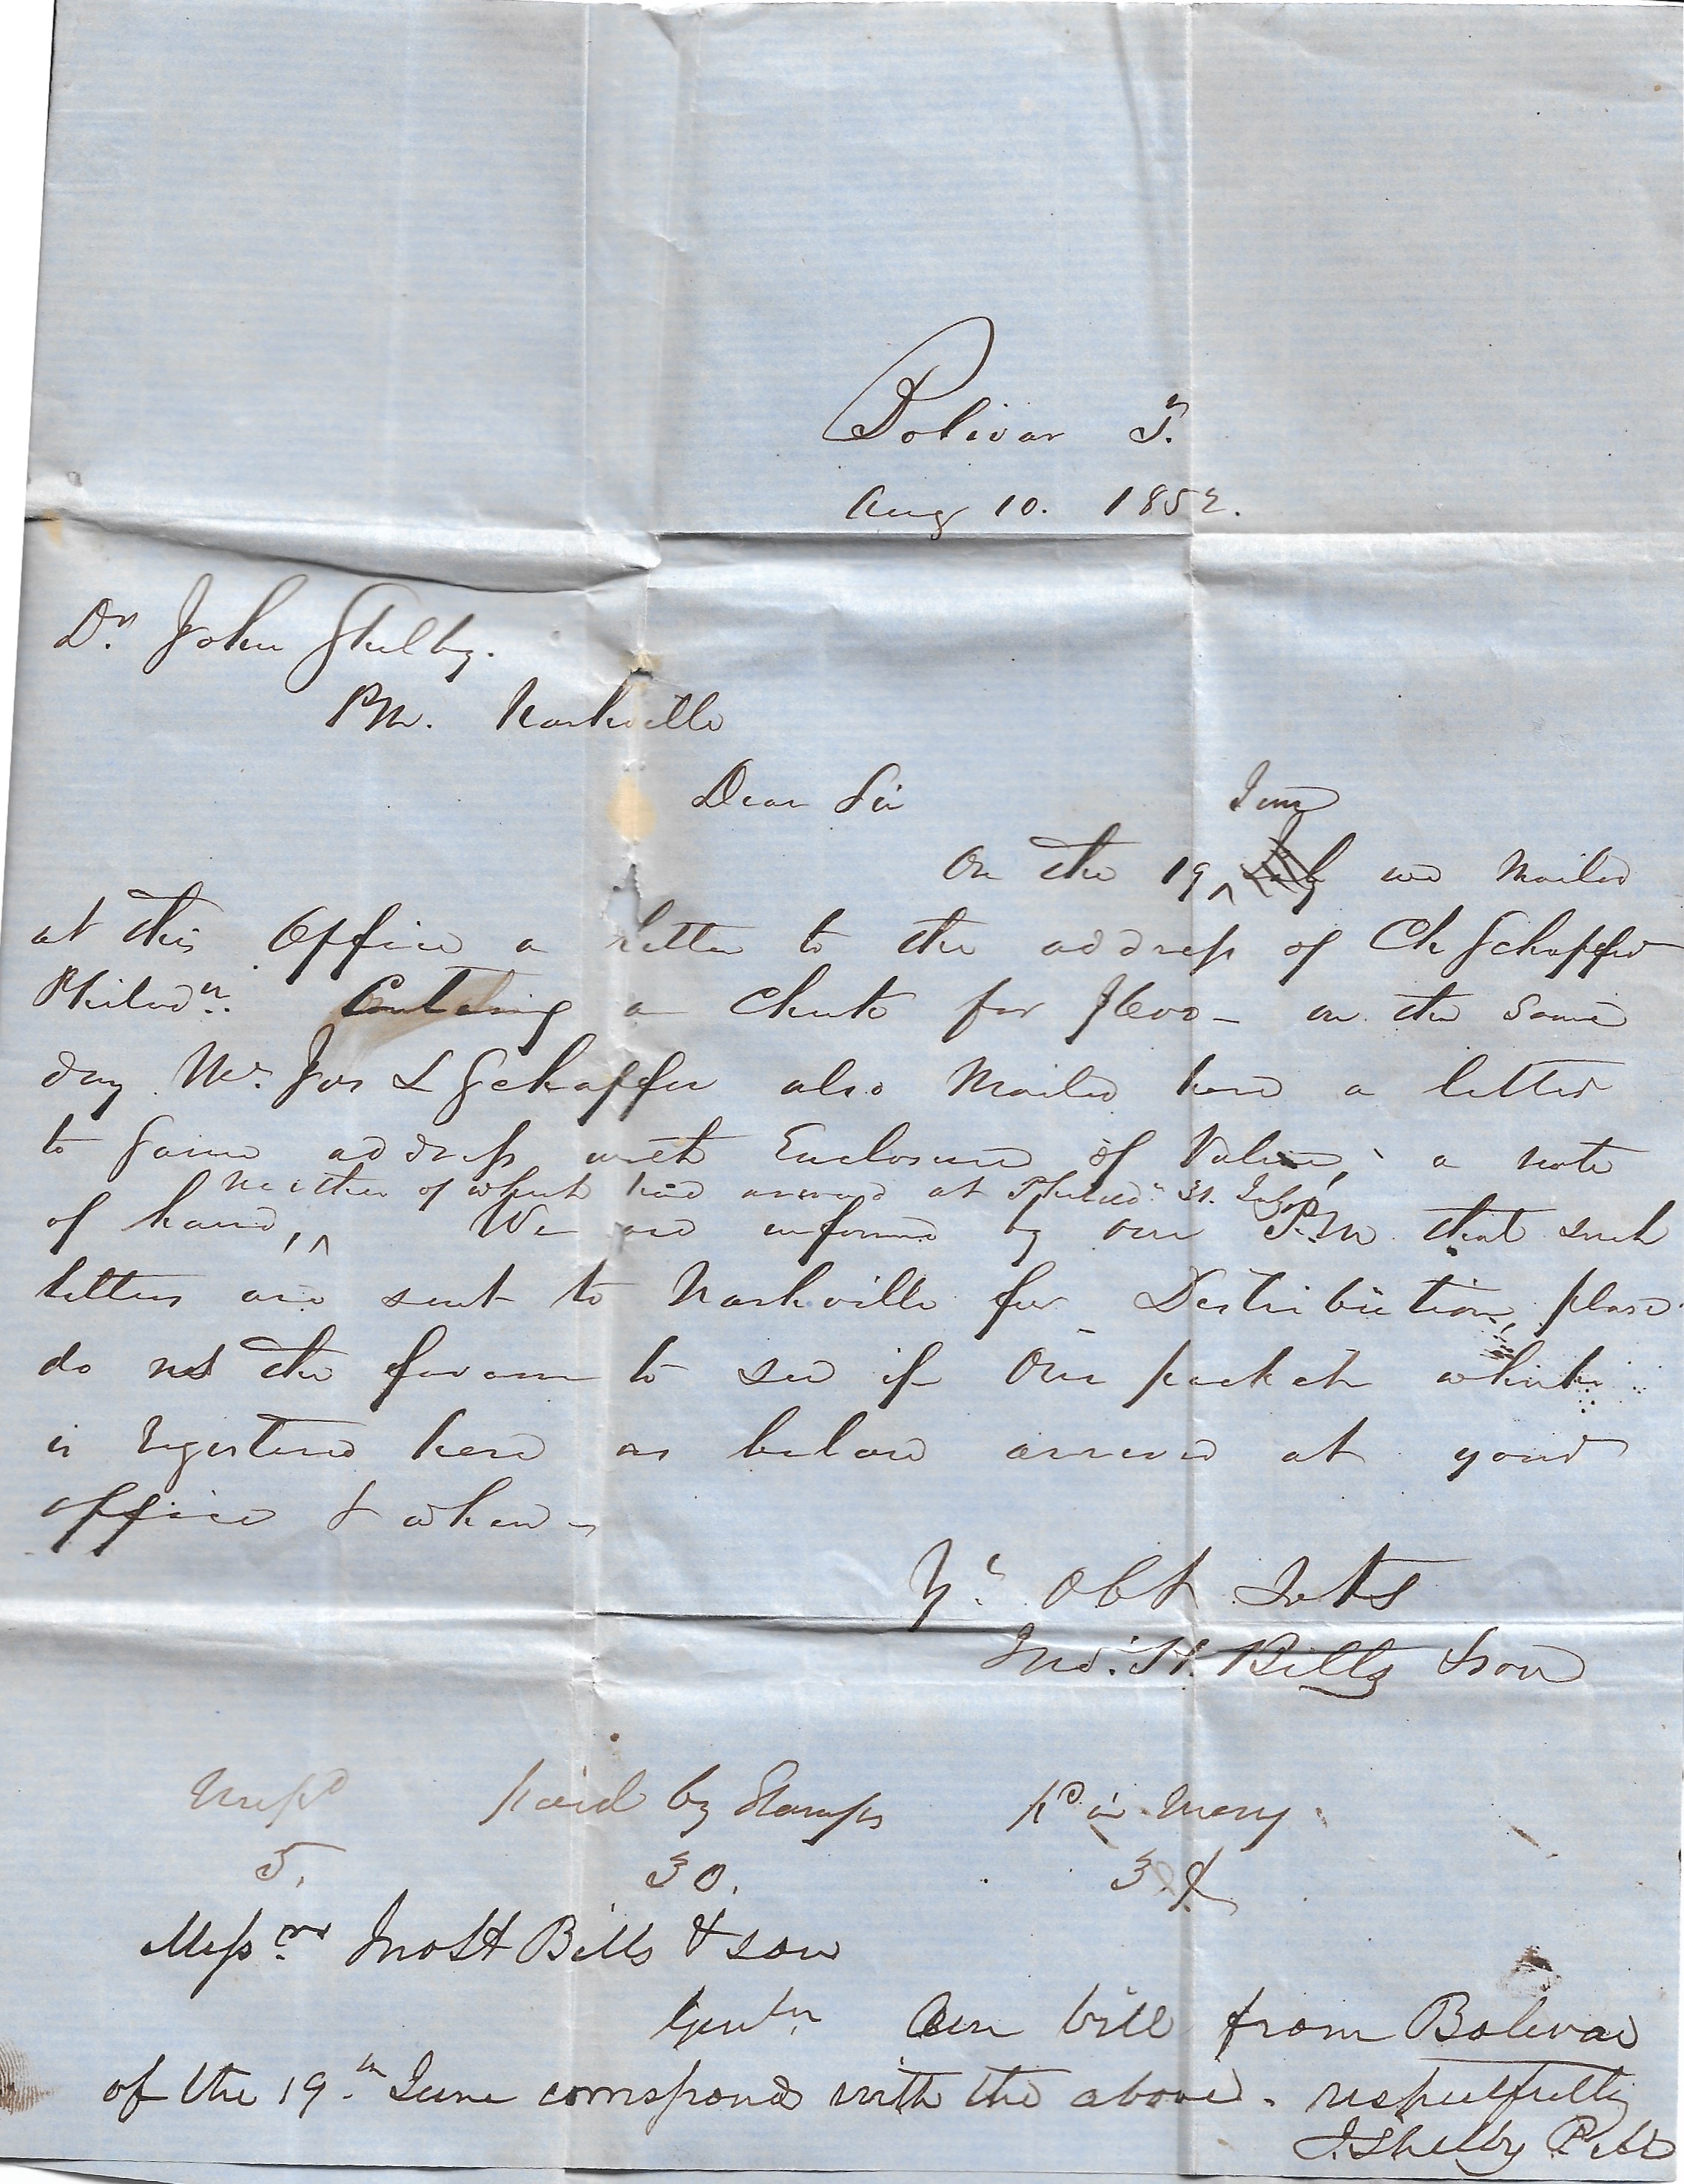 Bolivar Tn.
Aug 10. 1852.
Dr. John Shelby.
PM. Nashville
Dear Sir
June
On the 19 ^ July we mailed
at this Office a letter to the address of Ch Schaffer
Philada. Containing a Check for $600 - on the same
day Mr. Jos L Schaffer also mailed here a letter
to same address with Enclosure of Value, a note
neither of which had arrived at Philada. 31. July
of hand, ^ We are informed by our P.M that such
letters are sent to Nashville for Distribution, please
do us the favour to see if Our packet which
is registered here as below arrived at your
office & when -
Yr. Obt Svts
Jno. H. Bills & son
Unpd paid by Stamps pd in Money
5. 30. 3
Messrs Jno H Bills & son
Gentn Our bill from Bolivar
of the 19th June corresponds with the above. respectfully
J. Shelby